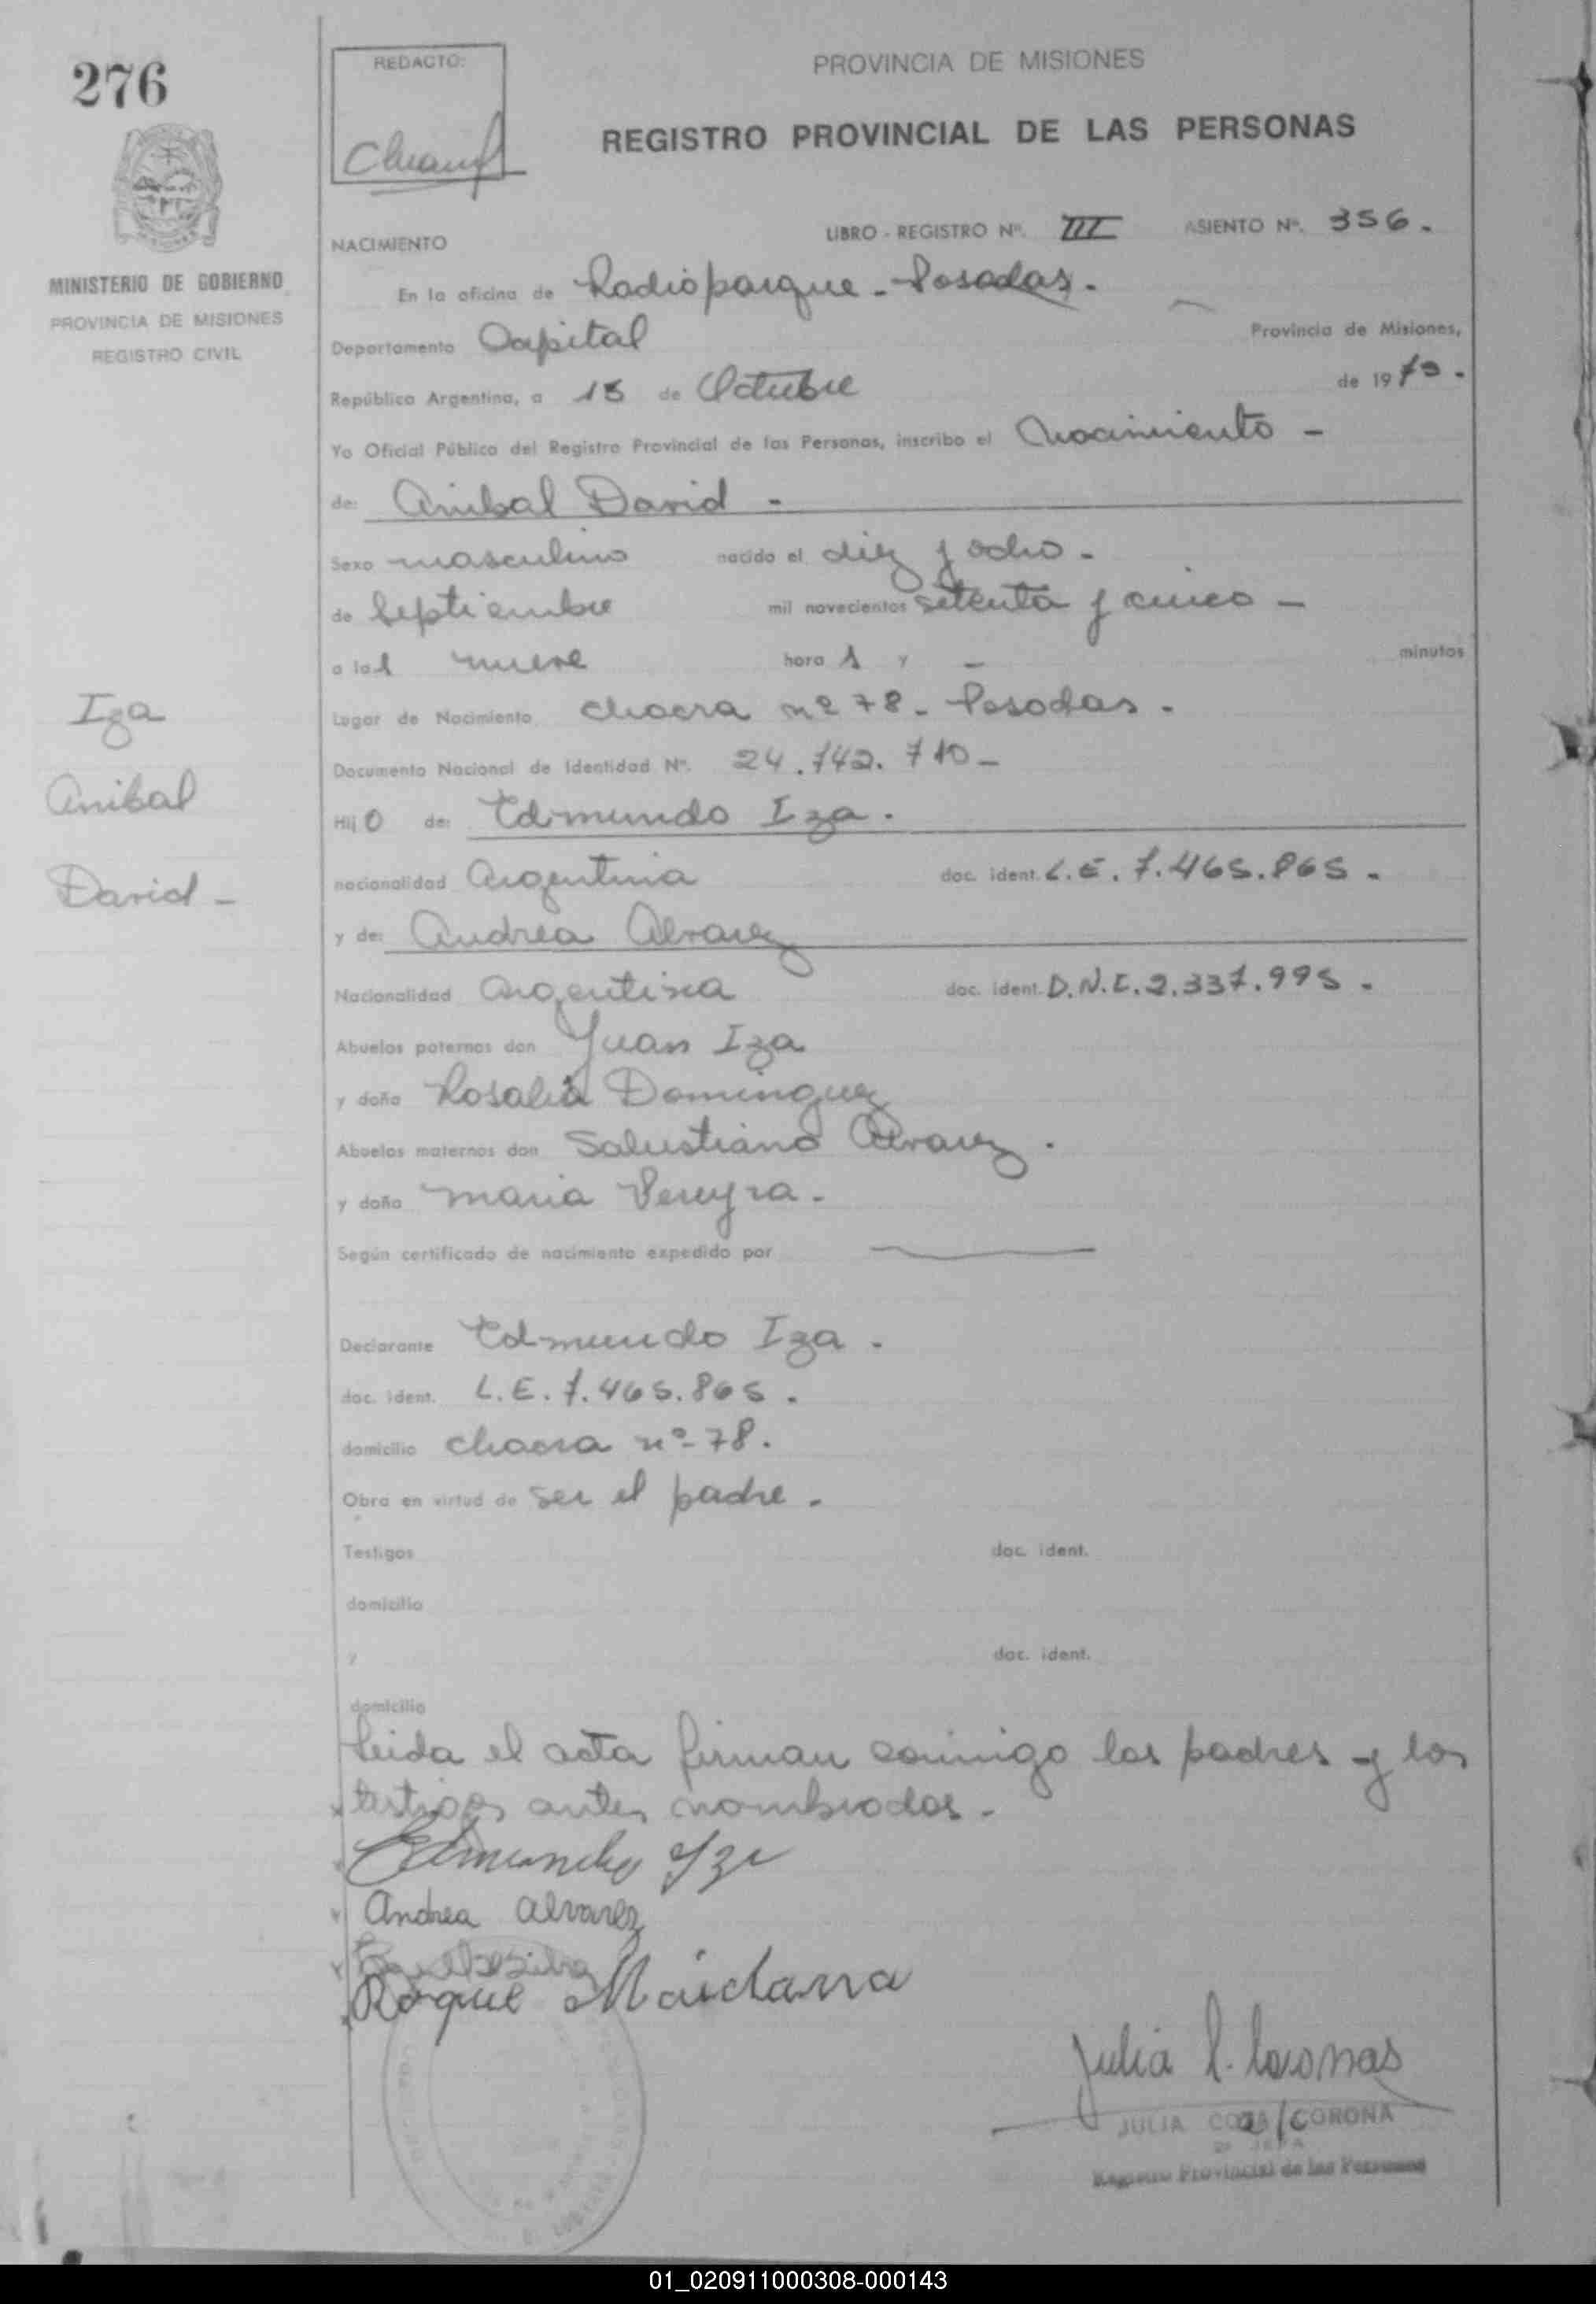 276
REDACTO:
PROVINCIA DE MISIONES
REGISTRO PROVINCIAL DE LAS PERSONAS
MINISTERIO DE GOBIERNO
PROVINCIA DE MISIONES
REGISTRO CIVIL
NACIMIENTO
LIBRO - REGISTRO Nº. III ASIENTO Nº. 356.
En la oficina de Radioparque - Posadas.
Departamento Capital Provincia de Misiones,
República Argentina, a 15 de Octubre de 1975.
Yo Oficial Público del Registro Provincial de las Personas, inscribo el Nacimiento -
de: Anibal David -
Sexo masculino nacido el diez y ocho -
de Septiembre mil novecientos setenta y cinco -
a las nueve hora s y - minutos
Lugar de Nacimiento chacra nº 78 - Posadas.
Documento Nacional de Identidad Nº. 24.742.710 -
Hijo de: Edmundo Iza.
nacionalidad Argentina doc. ident. L.E. 7.465.865 -
y de: Andrea Alvarez
Nacionalidad Argentina doc. ident. D.N.I. 2.337.995 -
Abuelos paternos don Juan Iza
y doña Rosalia Dominguez
Abuelos maternos don Salustiano Alvarez.
y doña Maria Pereyra -
Según certificado de nacimiento expedido por
Declarante Edmundo Iza.
doc. ident. L.E. 7.465.865.
domicilio chacra nº 78.
Obra en virtud de ser el padre.
Testigos doc. ident.
domicilio
y doc. ident.
domicilio
Leida el acta firman conmigo los padres y los
testigos antes nombrados.
Edmundo Iza
Andrea Alvarez
Roque Maidana
Iza
Anibal
David -
JULIA CORONA
JEFA
Registro Provincial de las Personas
01_020911000308-000143